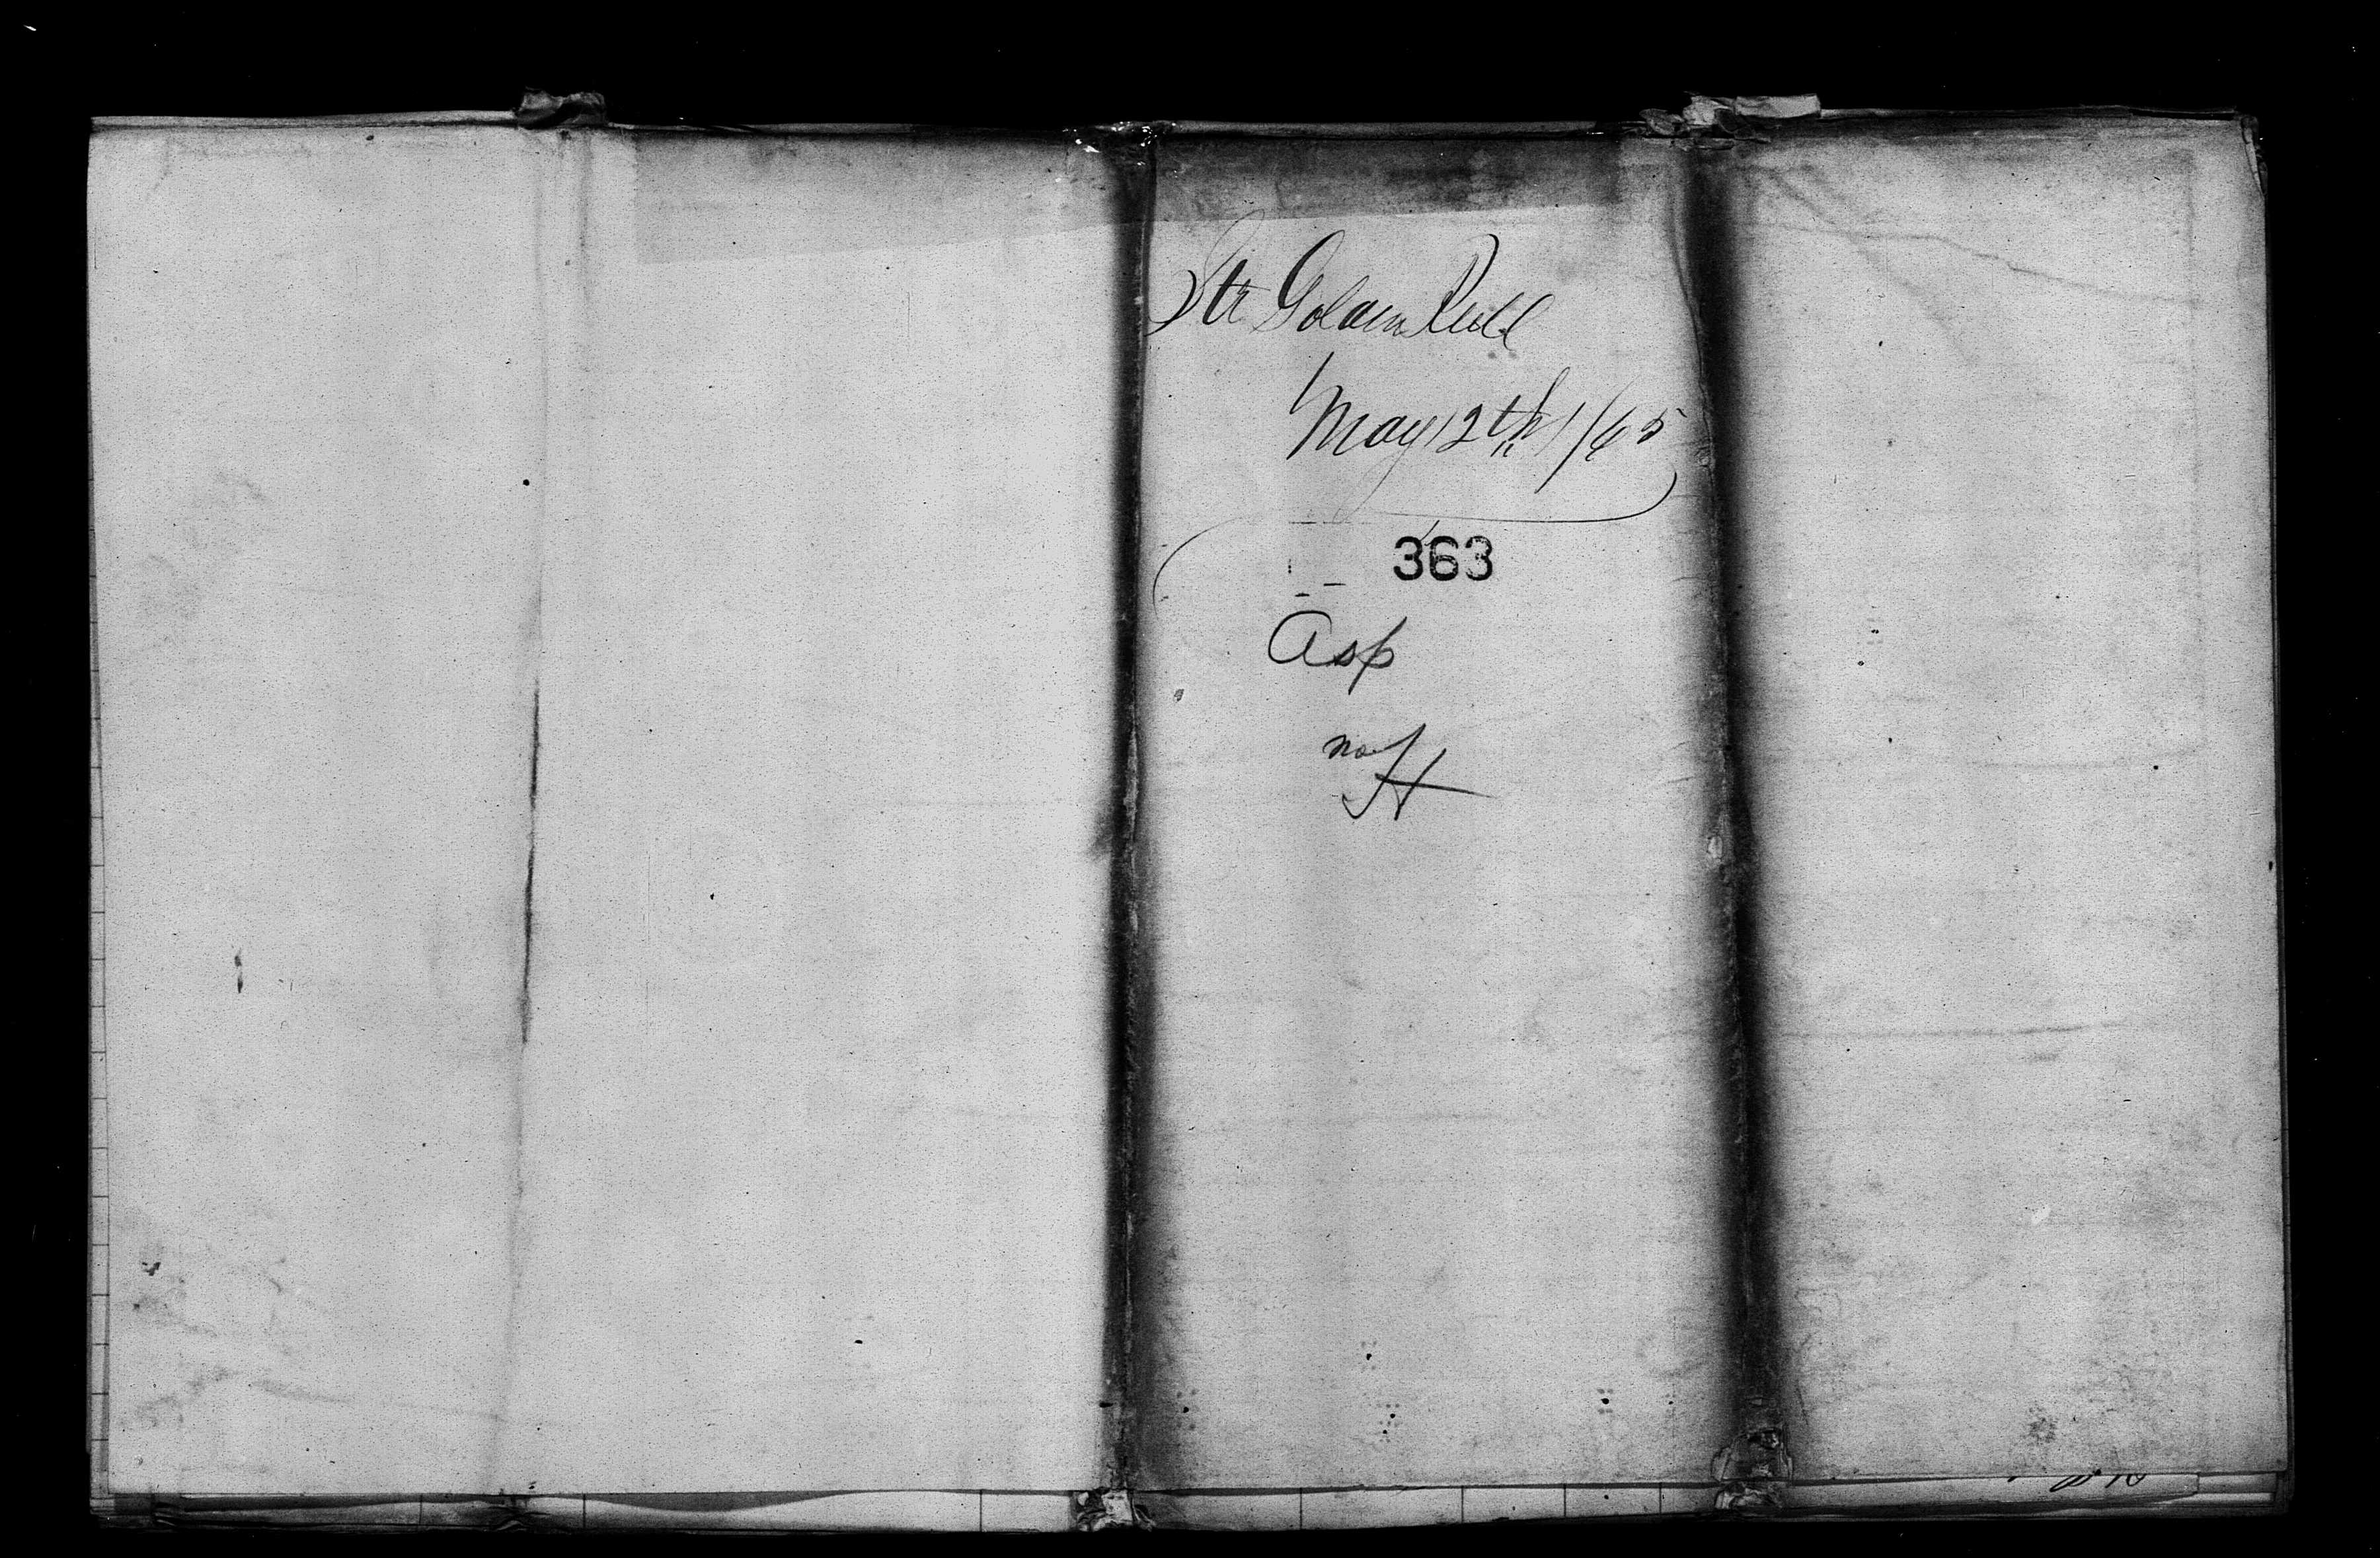 Str Golden Rule
May 12th 1/65
363
Asp
No H